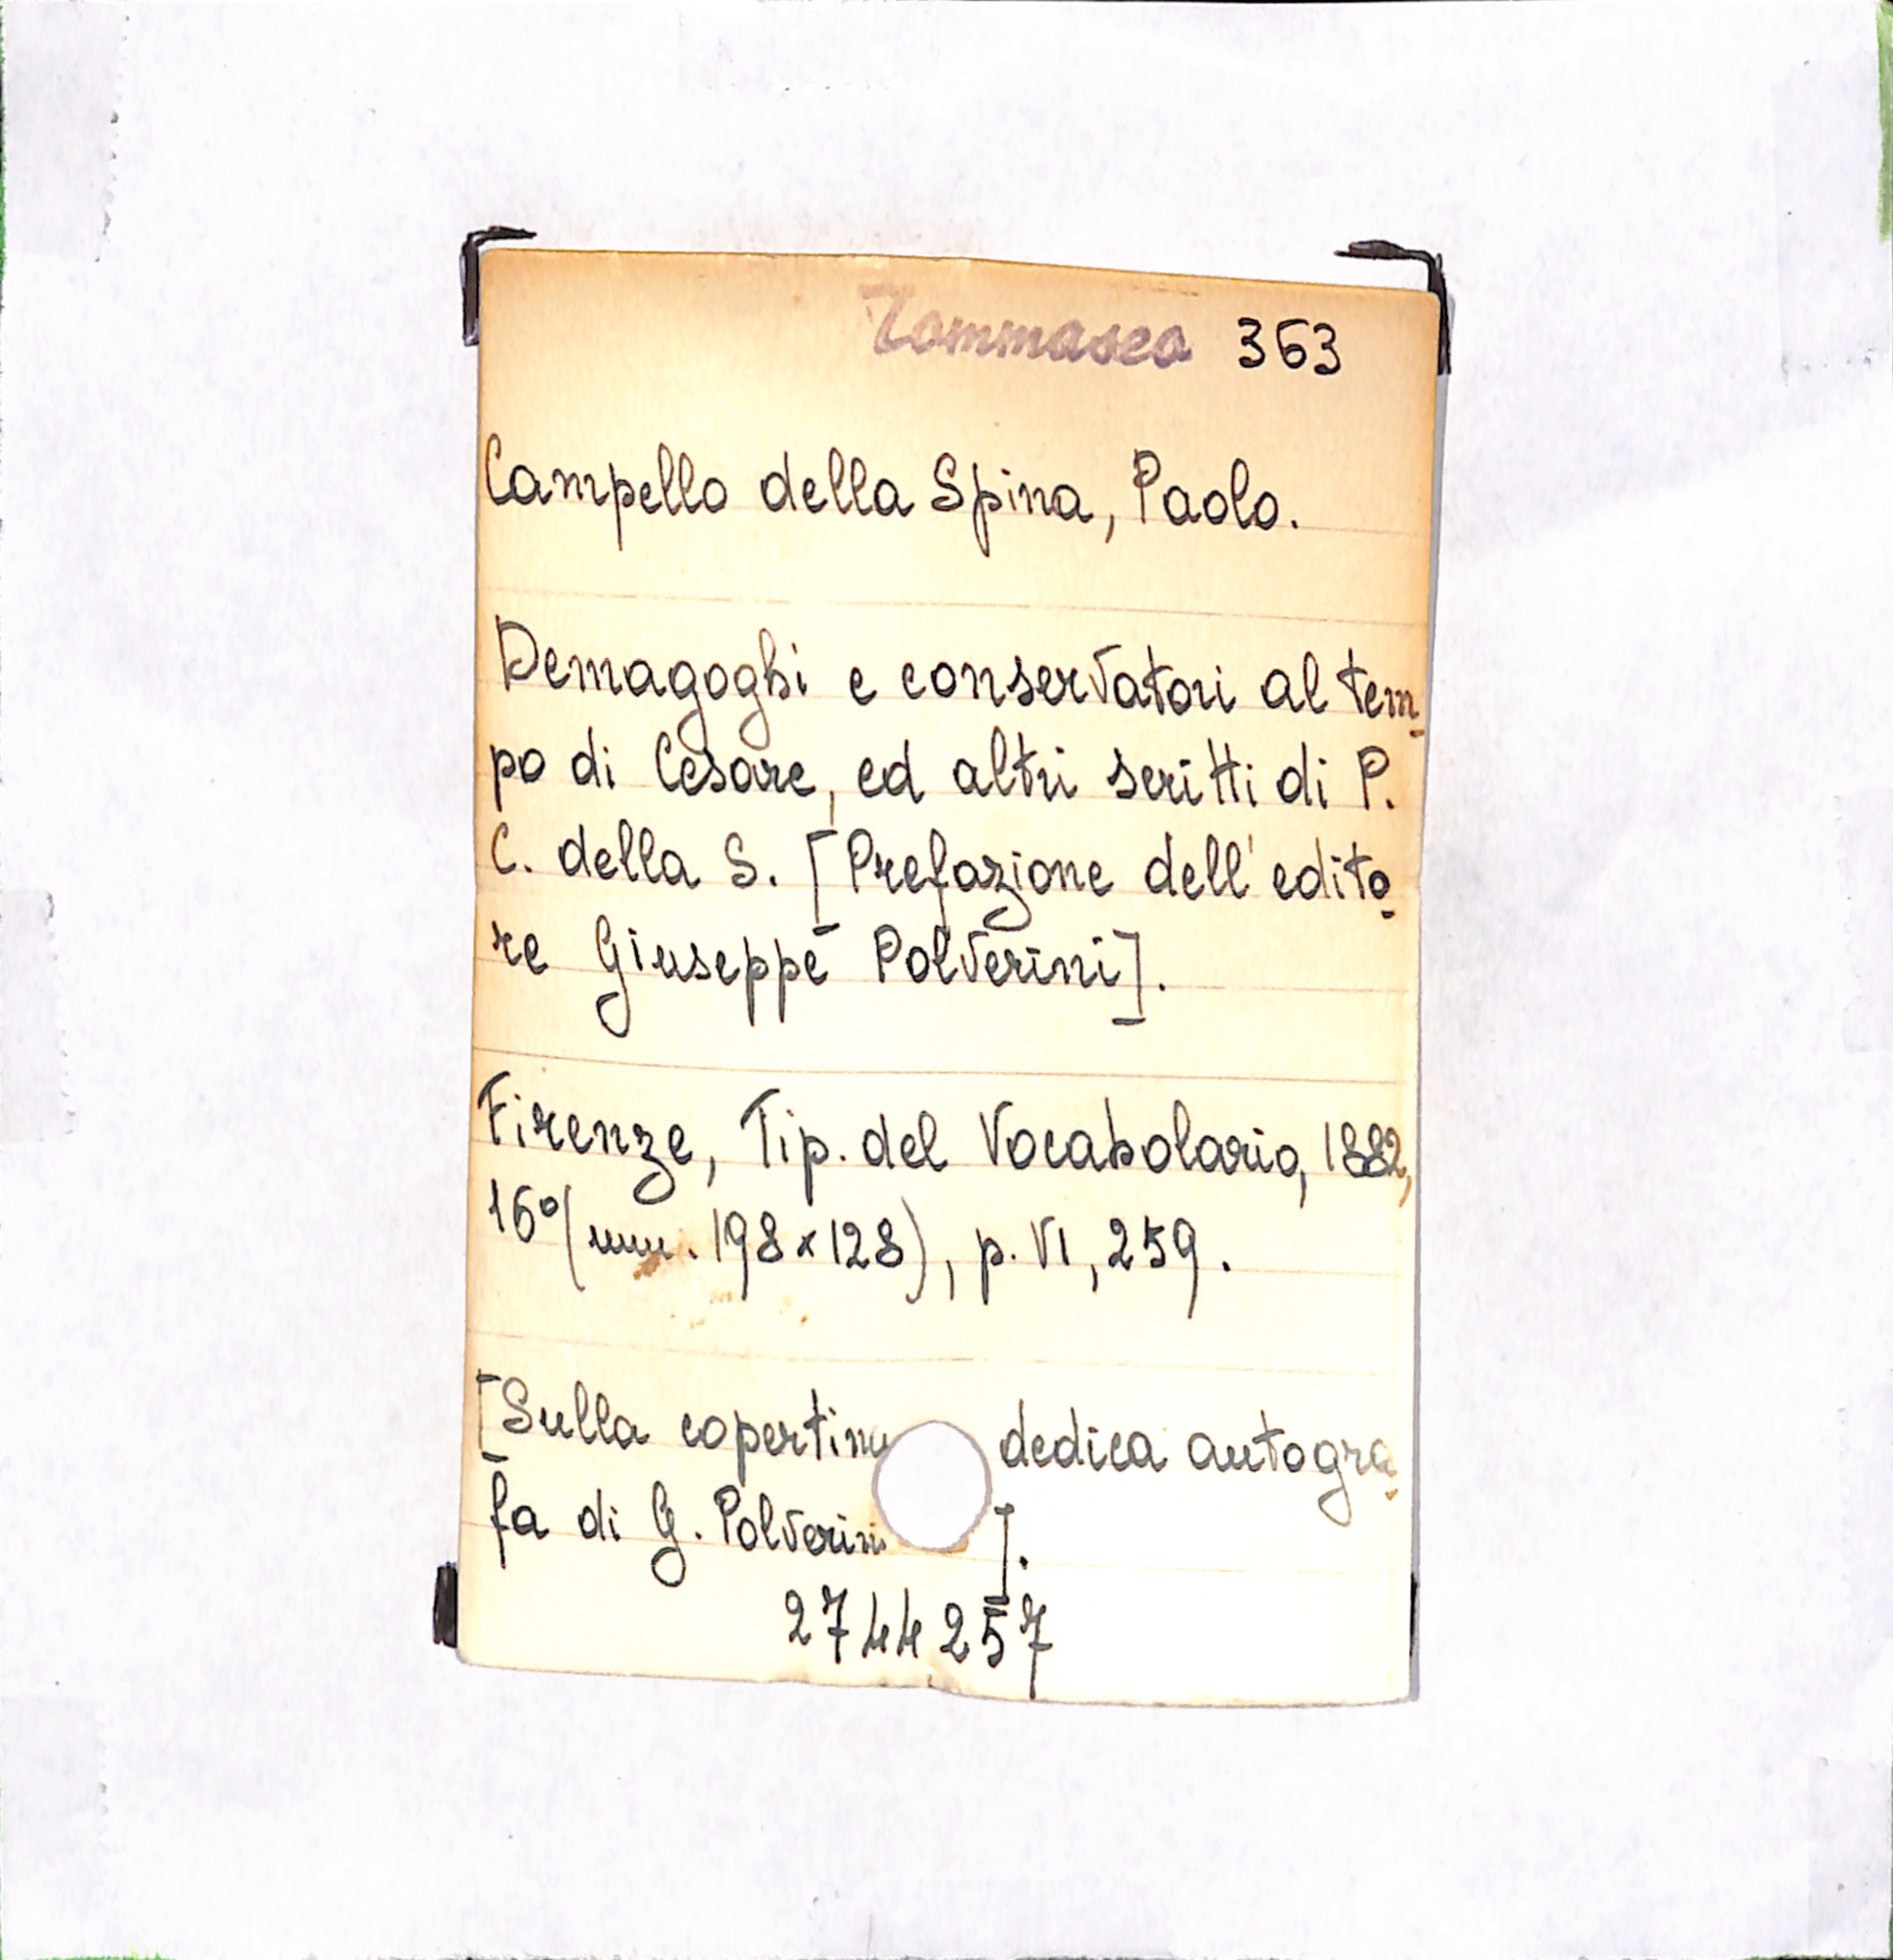 Tommaseo 363
Campello della Spina, Paolo.
Demagoghi e conservatori al tem-
po di Cesare, ed altri scritti di P.
C. della S. [Prefazione dell'edito-
re Giuseppe Polverini].
Firenze, Tip. del Vocabolario, 1882,
16° (mm. 198x128), p. VI, 259.
[Sulla copertina dedica autogra-
fa di G. Polverini].
2744257